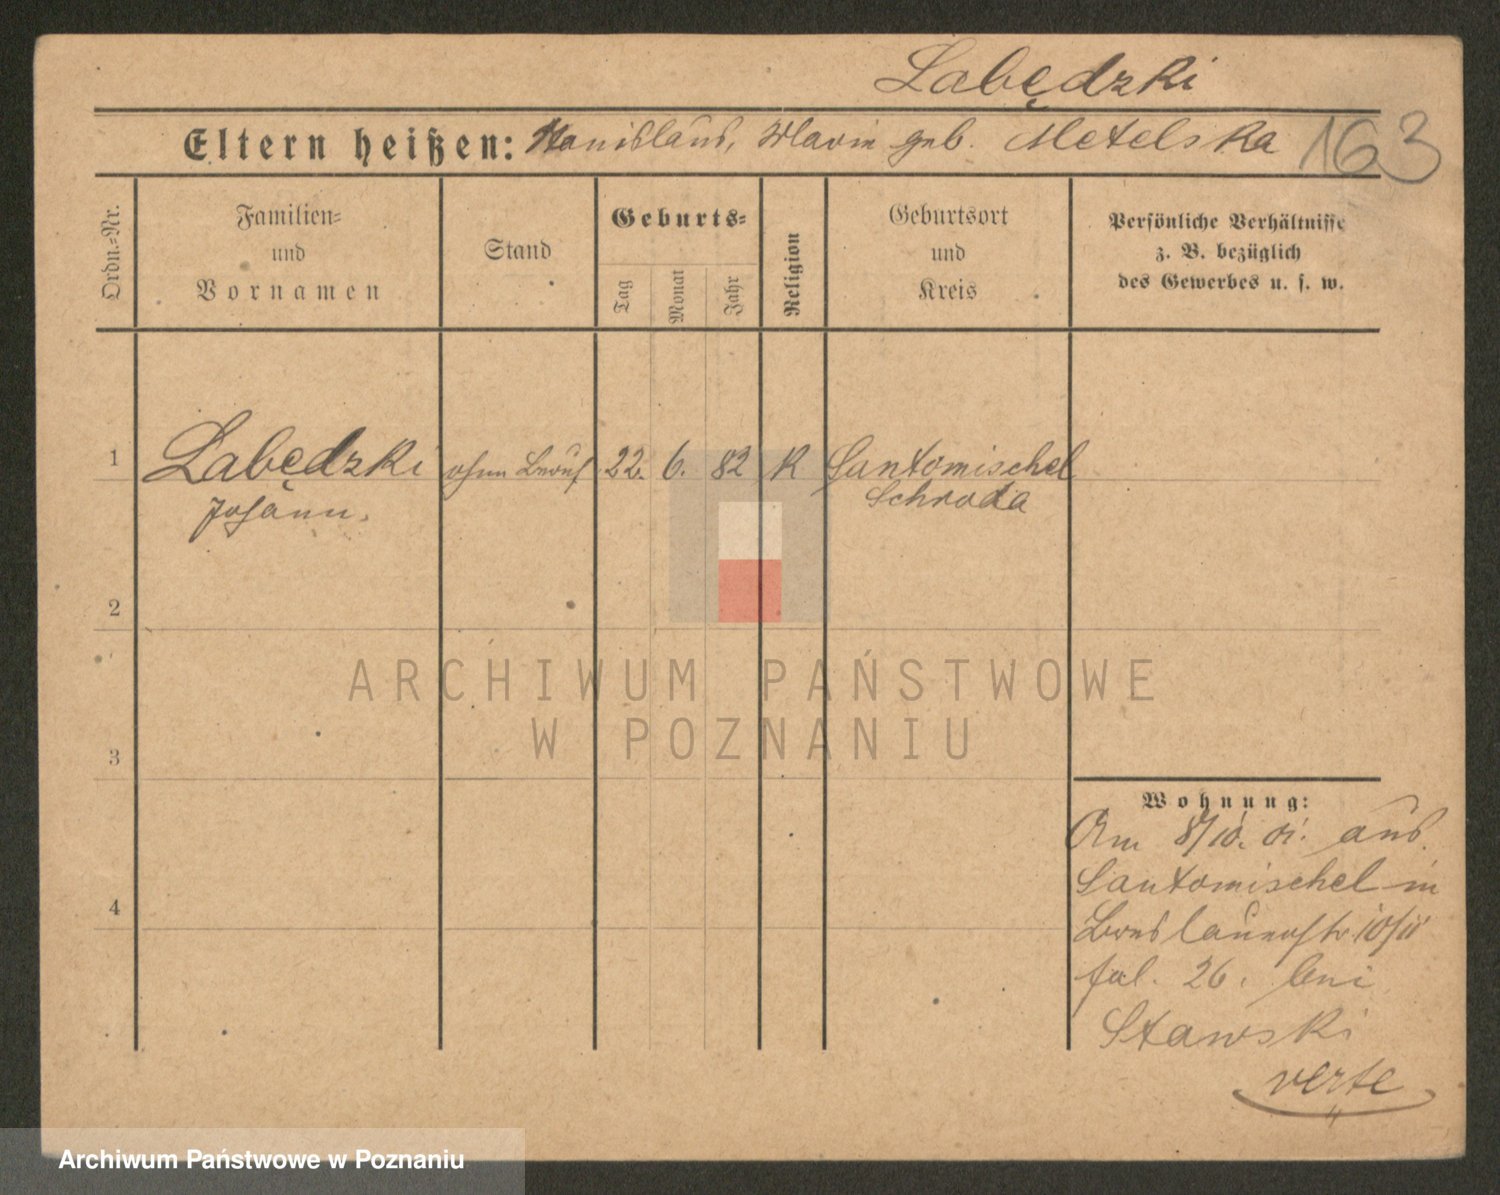 Łabędzki
Eltern heißen: Stanislaus, Marie geb. Metelska 163
Ordn.-Nr.
Familien-
und
Vornamen
Stand
Geburts-
Tag
Monat
Jahr
Religion
Geburtsort
und
Kreis
Persönliche Verhältnisse
z. B. bezüglich
des Gewerbes u. s. w.
1 Łabędzki ohne Beruf 22. 6. 82 K Santomischel
Johann. Schroda
2
3
4
ARCHIWUM PAŃSTWOWE
W POZNANIU
Wohnung:
Am 8/10. 01. aus
Santomischel in
Breslauerstr. 10/11
fol. 26. bei
Stawski
verte
Archiwum Państwowe w Poznaniu